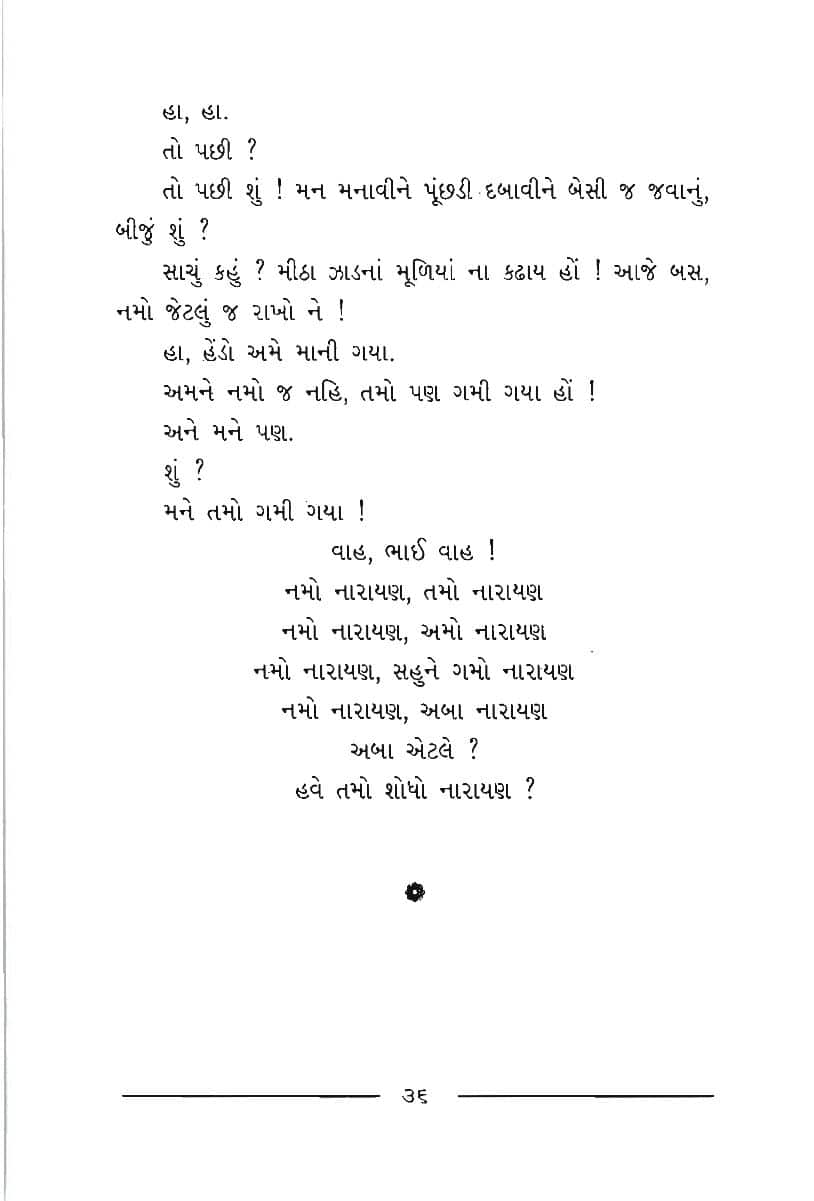 હા, હા.
તો પછી ?
તો પછી શું ! મન મનાવીને પૂંછડી દબાવીને બેસી જ જવાનું,
બીજું શું ?
સાચું કહું ? મીઠા ઝાડનાં મૂળિયાં ના કઢાય હોં ! આજે બસ,
નમો જેટલું જ રાખો ને !
હા, હેંડો અમે માની ગયા.
અમને નમો જ નહિ, તમો પણ ગમી ગયા હોં !
અને મને પણ.
શું ?
મને તમો ગમી ગયા !
વાહ, ભાઈ વાહ !
નમો નારાયણ, તમો નારાયણ
નમો નારાયણ, અમો નારાયણ
નમો નારાયણ, સહુને ગમો નારાયણ
નમો નારાયણ, અબા નારાયણ
અબા એટલે ?
હવે તમો શોધો નારાયણ ?
૩૬